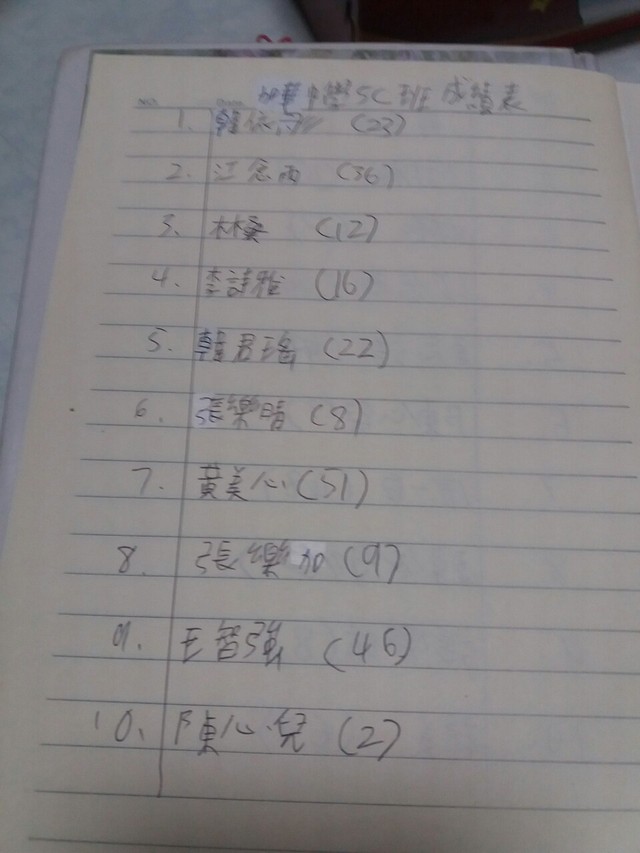 中學5C班成績表
1. 韓依 (23)
2. 江思雨 (36)
3. 林 (12)
4. 李詩雅 (16)
5. 韓君瑤 (22)
6. 張樂晴 (8)
7. 黃美心 (51)
8. 張樂加 (9)
9. 王智強 (46)
10. 陳心兒 (2)